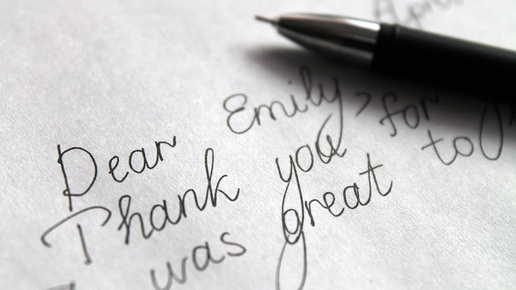 Dear Emily,
Thank you for
was great to